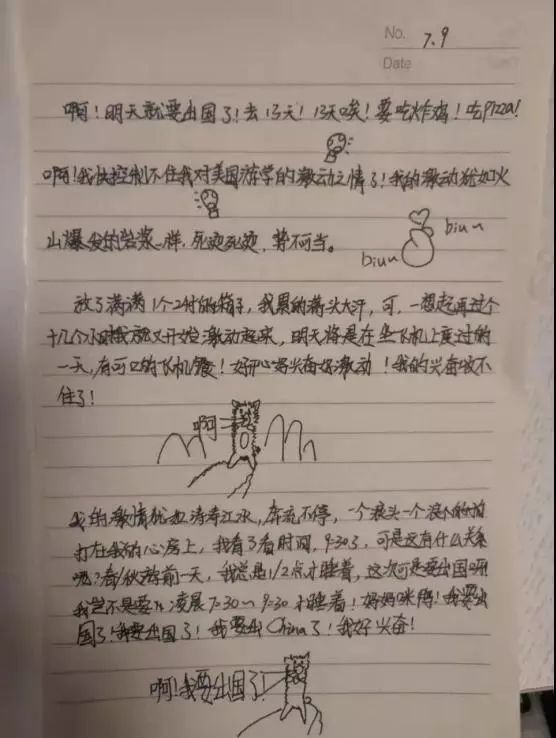 No. 7.9
Date
啊！明天就要出国了！去13天！13天唉！要吃炸鸡！吃pizza！
啊！我快控制不住我对美国游学的激动之情了！我的激动犹如火
山爆发的岩浆一样，死烫死烫，势不可当。
biu~
biu~
放了满满1个2寸的箱子，我累的满头大汗，可，一想起再过个
十几个小时我就又开始激动起来，明天将是在坐飞机上度过的
一天，有可口的飞机餐！好开心好兴奋好激动！我的兴奋收不
住了！
啊
我的激情犹如涛涛江水，奔流不停，一个浪头一个浪头的拍
打在我的心房上，我看了看时间，9:30了，可是这有什么关系
呢？春/秋游前一天，我总是1/2点才睡着，这次可是要出国啊
我岂不是要凌晨7:30~9:30才睡着！我要出
国了！我要出国了！我要出China了！我好兴奋！
啊！我要出国了！